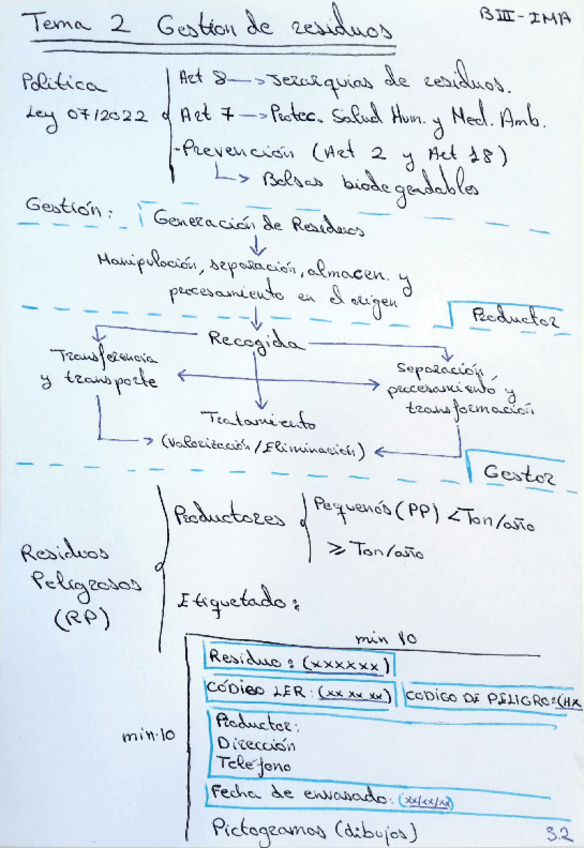 Tema 2 Gestión de residuos
BIII-IMA
Politica
Ley 07/2022
Art 8 -> Jerarquias de residuos.
Art 7 -> Protec. Salud Hum. y Med. Amb.
-Prevención (Art 2 y Art 18)
-> Bolsas biodegradables
Gestión:
Generación de Residuos
Manipulación, separación, almacen. y
procesamiento en el origen
Productor
Recogida
Transferencia
y transporte
Separación,
procesamiento y
transformación
Tratamiento
(Valorización/Eliminación)
Gestor
Residuos
Peligrosos
(RP)
Productores
Pequeños (PP) < Ton/año
≥ Ton/año
Etiquetado:
min 10
min. 10
Residuo: (xxxxxx)
CÓDIGO LER: (xx xx xx)
CODIGO DE PELIGRO: (HX
Productor:
Dirección
Teléfono
Fecha de envasado: (xx/xx/xx)
Pictogramas (dibujos)
3.2